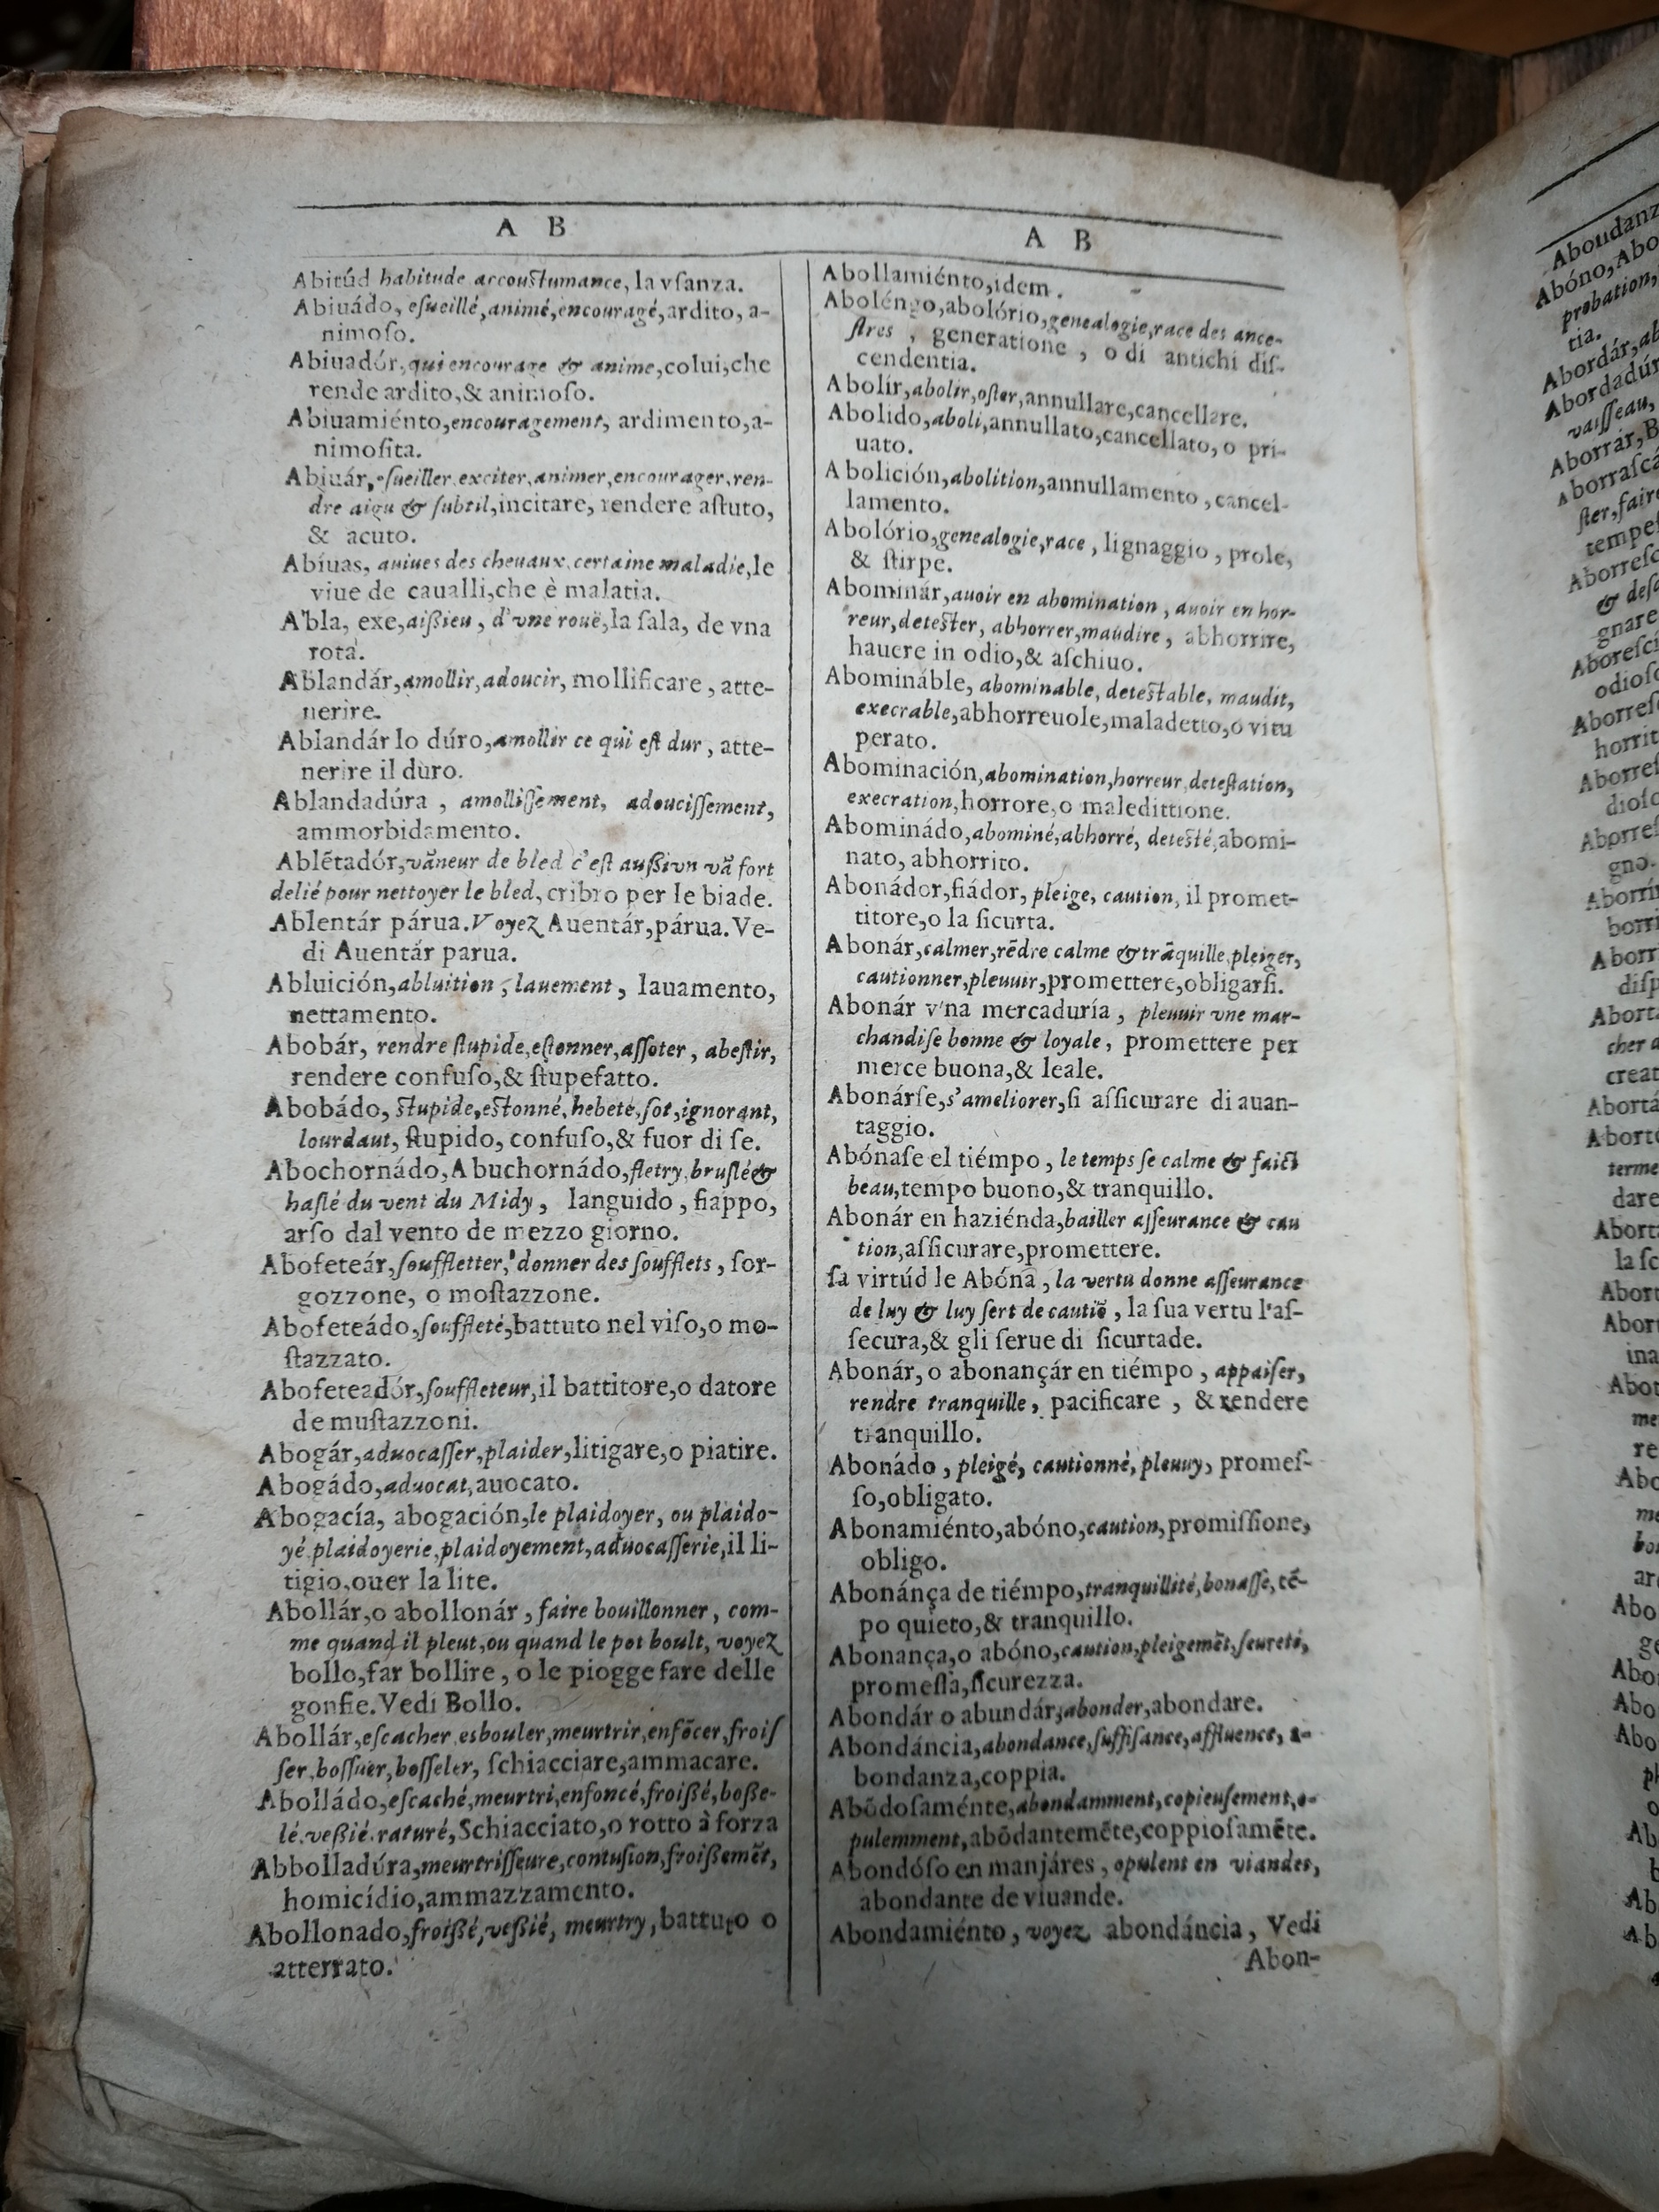 A B
Abitúd habitude accoustumance, la vſanza.
Abiuádo, eſueillé, animé, encouragé, ardito, a-
nimoſo.
Abiuadór, qui encourage & anime, colui, che
rende ardito, & animoſo.
Abiuamiénto, encouragement, ardimento, a-
nimoſita.
Abiuár, eſueiller, exciter, animer, encourager, ren-
dre aigu & ſubtil, incitare, rendere aſtuto,
& acuto.
Abíuas, auiues des cheuaux, certaine maladie, le
viue de caualli, che è malatia.
A'bla, exe, aißieu, d'vne rouë, la ſala, de vna
rota.
Ablandár, amollir, adoucir, mollificare, atte-
nerire.
Ablandár lo dúro, amollir ce qui eſt dur, atte-
nerire il duro.
Ablandadúra, amolliſſement, adouciſſement,
ammorbidamento.
Ablētadór, vāneur de bled c'eſt außivn vā fort
delié pour nettoyer le bled, cribro per le biade.
Ablentár párua. Voyez Auentár, párua. Ve-
di Auentár parua.
Abluición, abluition, lauement, lauamento,
nettamento.
Abobár, rendre ſtupide, eſtonner, aſſoter, abeſtir,
rendere confuſo, & ſtupefatto.
Abobádo, ſtupide, eſtonné, hebeté, ſot, ignorant,
lourdaut, ſtupido, confuſo, & fuor di ſe.
Abochornádo, Abuchornádo, fletry, bruſlé &
haſlé du vent du Midy, languido, fiappo,
arſo dal vento de mezzo giorno.
Abofeteár, ſouffletter, donner des ſoufflets, ſor-
gozzone, o moſtazzone.
Abofeteádo, ſouffleté, battuto nel viſo, o mo-
ſtazzato.
Abofeteadór, ſouffleteur, il battitore, o datore
de muſtazzoni.
Abogár, aduocaſſer, plaider, litigare, o piatire.
Abogádo, aduocat, auocato.
Abogacía, abogación, le plaidoyer, ou plaido-
yé, plaidoyerie, plaidoyement, aduocaſſerie, il li-
tigio, ouer la lite.
Abollár, o abollonár, faire bouillonner, com-
me quand il pleut, ou quand le pot boult, voyez
bollo, far bollire, o le piogge fare delle
gonfie. Vedi Bollo.
Abollár, eſcacher, esbouler, meurtrir, enfōcer, froiſ
ſer, boſſuer, boſſeler, ſchiacciare, ammacare.
Abolládo, eſcaché, meurtri, enfoncé, froißé, boße-
lé, veßié, raturé, Schiacciato, o rotto à forza
Abbolladúra, meurtriſſeure, contuſion, froißemēt,
homicídio, ammazzamento.
Abollonado, froißé, veßié, meurtry, battuto o
atterrato.
A B
Abollamiénto, idem.
Aboléngo, abolório, genealogie, race des ance-
ſtres, generatione, o di antichi diſ-
cendentia.
Abolír, abolir, oſter, annullare, cancellare.
Abolido, aboli, annullato, cancellato, o pri-
uato.
Abolición, abolition, annullamento, cancel-
lamento.
Abolório, genealogie, race, lignaggio, prole,
& ſtirpe.
Abominár, auoir en abomination, auoir en hor-
reur, deteſter, abhorrer, maudire, abhorrire,
hauere in odio, & aſchiuo.
Abomináble, abominable, deteſtable, maudit,
execrable, abhorreuole, maladetto, o vitu
perato.
Abominación, abomination, horreur, deteſtation,
execration, horrore, o maledittione.
Abominádo, abominé, abhorré, deteſté, abomi-
nato, abhorrito.
Abonádor, fiádor, pleige, caution, il promet-
titore, o la ſicurta.
Abonár, calmer, rēdre calme & trāquille, pleiger,
cautionner, pleuuir, promettere, obligarſi.
Abonár v'na mercaduría, pleuuir vne mar-
chandiſe bonne & loyale, promettere per
merce buona, & leale.
Abonárſe, s'ameliorer, ſi aſſicurare di auan-
taggio.
Abónaſe el tiémpo, le temps ſe calme & faict
beau, tempo buono, & tranquillo.
Abonár en haziénda, bailler aſſeurance & cau
tion, aſſicurare, promettere.
ſa virtúd le Abóna, la vertu donne aſſeurance
de luy & luy ſert de cautiō, la ſua vertu l'aſ-
ſecura, & gli ſerue di ſicurtade.
Abonár, o abonançár en tiémpo, appaiſer,
rendre tranquille, pacificare, & rendere
tranquillo.
Abonádo, pleigé, cautionné, pleuuy, promeſ-
ſo, obligato.
Abonamiénto, abóno, caution, promiſſione,
obligo.
Abonánça de tiémpo, tranquillité, bonaſſe, tē-
po quieto, & tranquillo.
Abonança, o abóno, caution, pleigemēt, ſeureté,
promeſſa, ſicurezza.
Abondár o abundár, abonder, abondare.
Abondáncia, abondance, ſuffiſance, affluence, a-
bondanza, coppia.
Abōdoſaménte, abondamment, copieuſement, o-
pulemment, abōdantemēte, coppioſamēte.
Abondóſo en manjáres, opulent en viandes,
abondante de viuande.
Abondamiénto, voyez abondáncia, Vedi
Abon-
Abóno, Abo
probation,
tia.